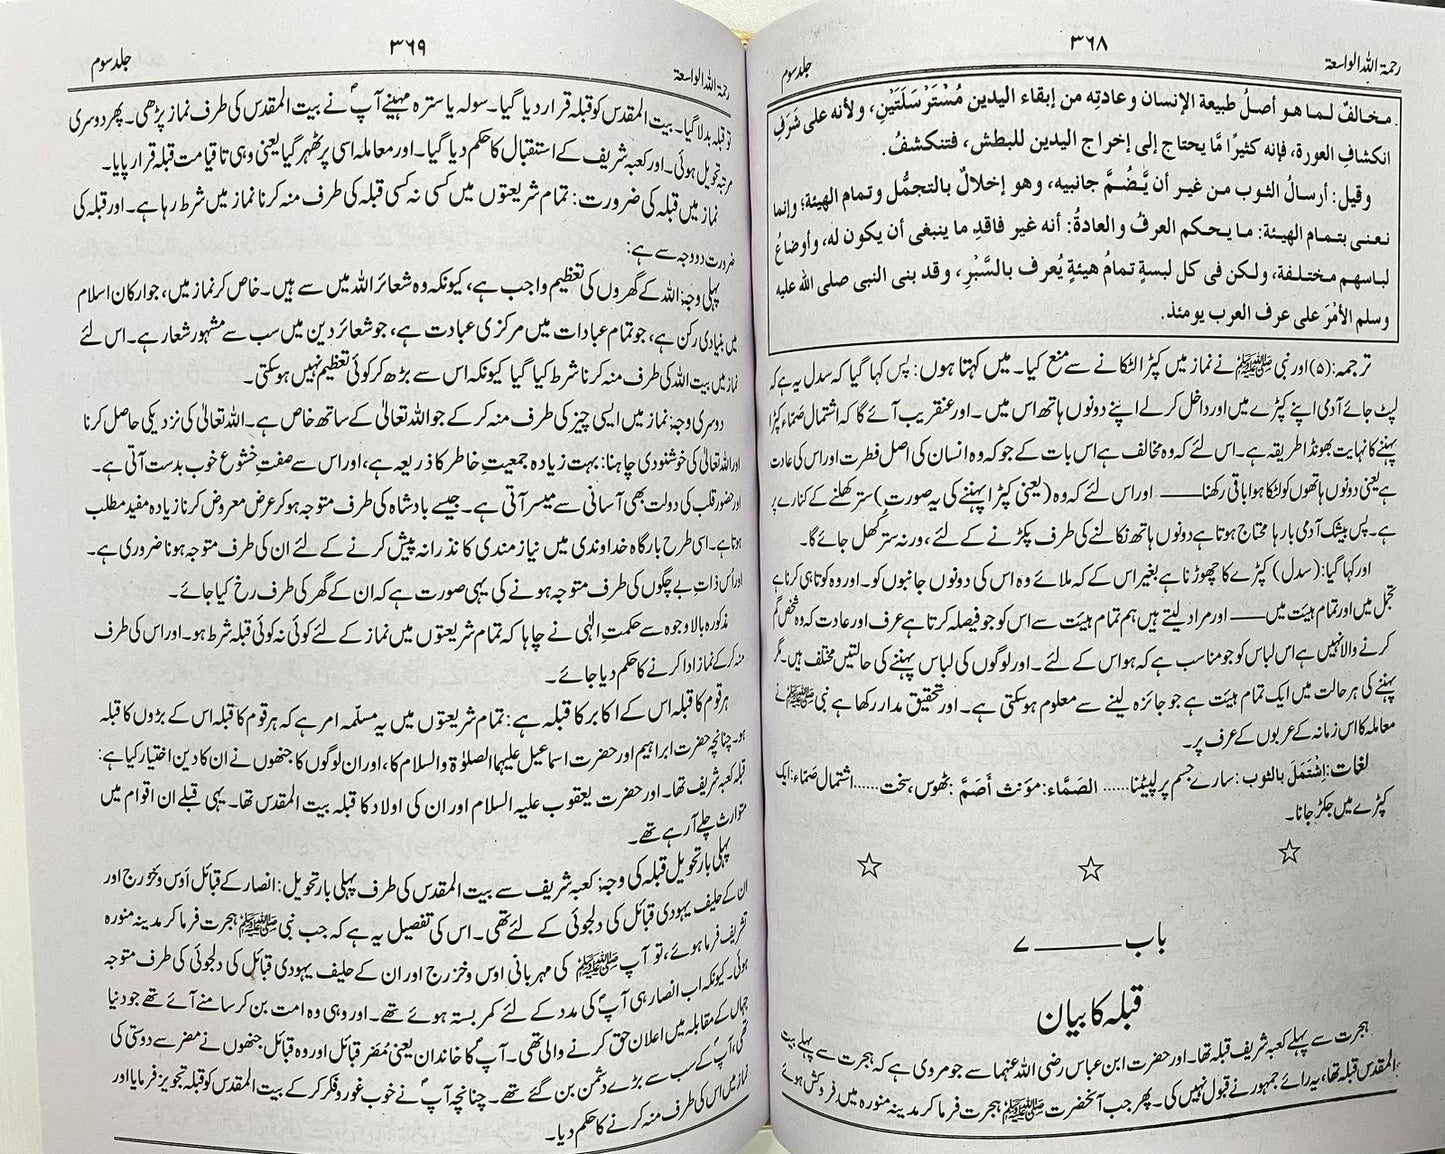 رحمۃ اللہ الواسعۃ
۳۶۸
جلد سوم
مخالفٌ لـما هو أصلُ طبيعة الإنسان وعادتِه من إبقاء اليدين مُسْتَرْسَلَتَيْنِ، ولأنه على شَرَفِ
انكشافِ العورة، فإنه كثيرًا مَّا يحتاج إلى إخراج اليدين للبطش، فتنكشفُ.
وقيل: أرسالُ الثوب من غير أن يَّضُمَّ جانبيه، وهو إخلالٌ بالتجمُّل وتمام الهيئة؛ وإنما
نعني بتمام الهيئة: ما يحكم العرفُ والعادةُ: أنه غير فاقدِ ما ينبغى أن يكون له، وأوضاعُ
لباسهم مختلفة، ولكن فى كل لبسةٍ تمامُ هيئةٍ يُعرف بالسَّبْرِ، وقد بنى النبى صلى الله عليه
وسلم الأمْرَ على عرف العرب يومئذ.
ترجمہ: (۵) اور نبی ﷺ نے نماز میں کپڑا لٹکانے سے منع کیا۔ میں کہتا ہوں: پس کہا گیا کہ سدل یہ ہے کہ
لپٹ جائے آدمی اپنے کپڑے میں اور داخل کرلے اپنے دونوں ہاتھ اس میں۔ اور عنقریب آئے گا کہ اشتمال صمّاء کپڑا
پہننے کا نہایت بھونڈا طریقہ ہے۔ اس لئے کہ وہ مخالف ہے اس بات کے جو کہ وہ انسان کی اصل فطرت اور اس کی عادت
ہے یعنی دونوں ہاتھوں کو لٹکا ہوا باقی رکھنا ــــــ اور اس لئے کہ وہ (یعنی کپڑا پہننے کی یہ صورت) ستر کھلنے کے کنارے پر
ہے۔ پس بیشک آدمی بارہا محتاج ہوتا ہے دونوں ہاتھ نکالنے کی طرف پکڑنے کے لئے، ورنہ ستر کھل جائے گا۔
اور کہا گیا: (سدل) کپڑے کا چھوڑنا ہے بغیر اس کے کہ ملائے وہ اس کی دونوں جانبوں کو۔ اور وہ کوتاہی کرنا ہے
تجمل میں اور تمام ہیئت میں ــــــ اور مراد لیتے ہیں ہم تمام ہیئت سے اس کو جو فیصلہ کرتا ہے عرف اور عادت کہ وہ شخص گم
کرنے والا نہیں ہے اس لباس کو جو مناسب ہے کہ ہو اس کے لئے۔ اور لوگوں کی لباس پہننے کی حالتیں مختلف ہیں۔ مگر
پہننے کی ہر حالت میں ایک تمام ہیئت ہے جو جائزہ لینے سے معلوم ہوسکتی ہے۔ اور تحقیق مدار رکھا ہے نبی ﷺ نے
معاملہ کا اس زمانہ کے عربوں کے عرف پر۔
لغات: اِشْتَمَلَ بالثوب: سارے جسم پر لپیٹنا...... الصَمَّاء: مؤنث أَصَمَّ: ٹھوس، سخت...... اشتمال صَمّاء: ایک
کپڑے میں جکڑ جانا۔
باب ــــــــــ ۷
قبلہ کا بیان
ہجرت سے پہلے کعبہ شریف قبلہ تھا۔ اور حضرت ابن عباس رضی اللہ عنہما سے جو مروی ہے کہ ہجرت سے پہلے بیت
المقدس قبلہ تھا، یہ رائے جمہور نے قبول نہیں کی۔ پھر جب آنحضرت ﷺ ہجرت فرما کر مدینہ منورہ میں فروکش ہوئے
رحمۃ اللہ الواسعۃ
۳۶۹
جلد سوم
تو قبلہ بدلا گیا۔ بیت المقدس کو قبلہ قرار دیا گیا۔ سولہ یا سترہ مہینے آپؐ نے بیت المقدس کی طرف نماز پڑھی۔ پھر دوسری
مرتبہ تحویل ہوئی۔ اور کعبہ شریف کے استقبال کا حکم دیا گیا۔ اور معاملہ اسی پر ٹھہر گیا یعنی وہی تا قیامت قبلہ قرار پایا۔
نماز میں قبلہ کی ضرورت: تمام شریعتوں میں کسی نہ کسی قبلہ کی طرف منہ کرنا نماز میں شرط رہا ہے۔ اور قبلہ کی
ضرورت دو وجہ سے ہے:
پہلی وجہ: اللہ کے گھروں کی تعظیم واجب ہے، کیونکہ وہ شعائر اللہ میں سے ہیں۔ خاص کر نماز میں، جو ارکان اسلام
میں بنیادی رکن ہے، جو تمام عبادات میں مرکزی عبادت ہے، جو شعائر دین میں سب سے مشہور شعار ہے۔ اس لئے
نماز میں بیت اللہ کی طرف منہ کرنا شرط کیا گیا کیونکہ اس سے بڑھ کر کوئی تعظیم نہیں ہوسکتی۔
دوسری وجہ: نماز میں ایسی چیز کی طرف منہ کر کے جو اللہ تعالیٰ کے ساتھ خاص ہے۔ اللہ تعالیٰ کی نزدیکی حاصل کرنا
اور اللہ تعالیٰ کی خوشنودی چاہنا: بہت زیادہ جمعیتِ خاطر کا ذریعہ ہے، اور اس سے صفتِ خشوع خوب بدست آتی ہے۔
اور حضور قلب کی دولت بھی آسانی سے میسر آتی ہے۔ جیسے بادشاہ کی طرف متوجہ ہوکر عرض معروض کرنا زیادہ مفید مطلب
ہوتا ہے۔ اسی طرح بارگاہ خداوندی میں نیازمندی کا نذرانہ پیش کرنے کے لئے ان کی طرف متوجہ ہونا ضروری ہے۔
اور اُس ذاتِ بے چگوں کی طرف متوجہ ہونے کی یہی صورت ہے کہ ان کے گھر کی طرف رخ کیا جائے۔
مذکورہ بالا وجوہ سے حکمتِ الٰہی نے چاہا کہ تمام شریعتوں میں نماز کے لئے کوئی نہ کوئی قبلہ شرط ہو۔ اور اس کی طرف
منہ کر کے نماز ادا کرنے کا حکم دیا جائے۔
ہر قوم کا قبلہ اس کے اکابر کا قبلہ ہے: تمام شریعتوں میں یہ مسلّمہ امر ہے کہ ہر قوم کا قبلہ اس کے بڑوں کا قبلہ
ہو۔ چنانچہ حضرت ابراہیم اور حضرت اسماعیل علیہما الصلوٰۃ والسلام کا، اور ان لوگوں کا جنھوں نے ان کا دین اختیار کیا ہے:
قبلہ کعبہ شریف تھا۔ اور حضرت یعقوب علیہ السلام اور ان کی اولاد کا قبلہ بیت المقدس تھا۔ یہی قبلے ان اقوام میں
متوارث چلے آرہے تھے۔
پہلی بار تحویل قبلہ کی وجہ: کعبہ شریف سے بیت المقدس کی طرف پہلی بار تحویل: انصار کے قبائل اَوس وخزرج اور
ان کے حلیف یہودی قبائل کی دلجوئی کے لئے تھی۔ اس کی تفصیل یہ ہے کہ جب نبی ﷺ ہجرت فرما کر مدینہ منورہ
تشریف فرما ہوئے، تو آپ ﷺ کی مہربانی اوس وخزرج اور ان کے حلیف یہودی قبائل کی دلجوئی کی طرف متوجہ
ہوئی۔ کیونکہ اب انصار ہی آپؐ کی مدد کے لئے کمر بستہ ہوئے تھے۔ اور وہی وہ امت بن کر سامنے آئے تھے جو دنیا
جہاں کے مقابلہ میں اعلان حق کرنے والی تھی۔ آپؐ کا خاندان یعنی مُضَر قبائل اور وہ قبائل جنھوں نے مضر سے دوستی کی
تھی، آپؐ کے سب سے بڑے دشمن بن گئے تھے۔ چنانچہ آپؐ نے خوب غور وفکر کر کے بیت المقدس کو قبلہ تجویز فرمایا اور
نماز میں اس کی طرف منہ کرنے کا حکم دیا۔